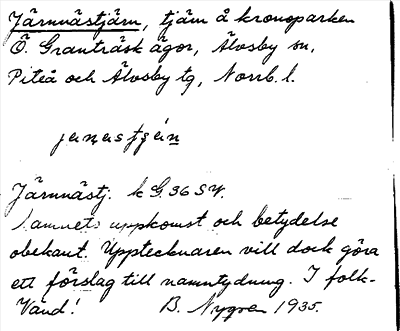 Järnnästjärn, tjärn å kronoparken
Ö. Granträsk ägor, Älvsby sn,
Piteå och Älvsby tg, Norrb. l.
Järnnästj. k G. 36 SV.
Namnets uppkomst och betydelse
obekant. Upptecknaren vill dock göra
ett förslag till namntydning. I folk-
Vänd!
B. Nygren 1935.